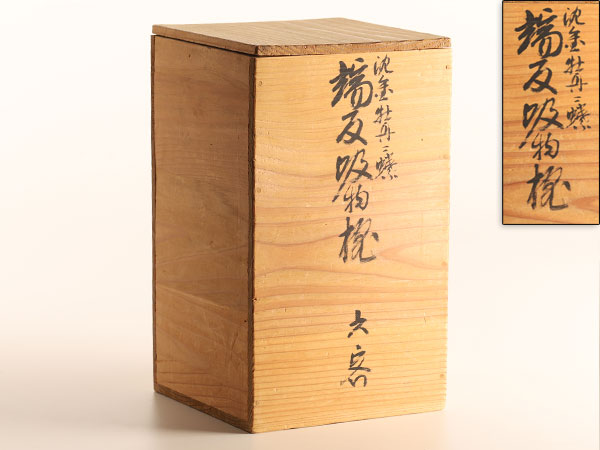 沈金牡丹ニ蝶
端反吸物椀
六客
沈金牡丹ニ蝶
端反吸物椀